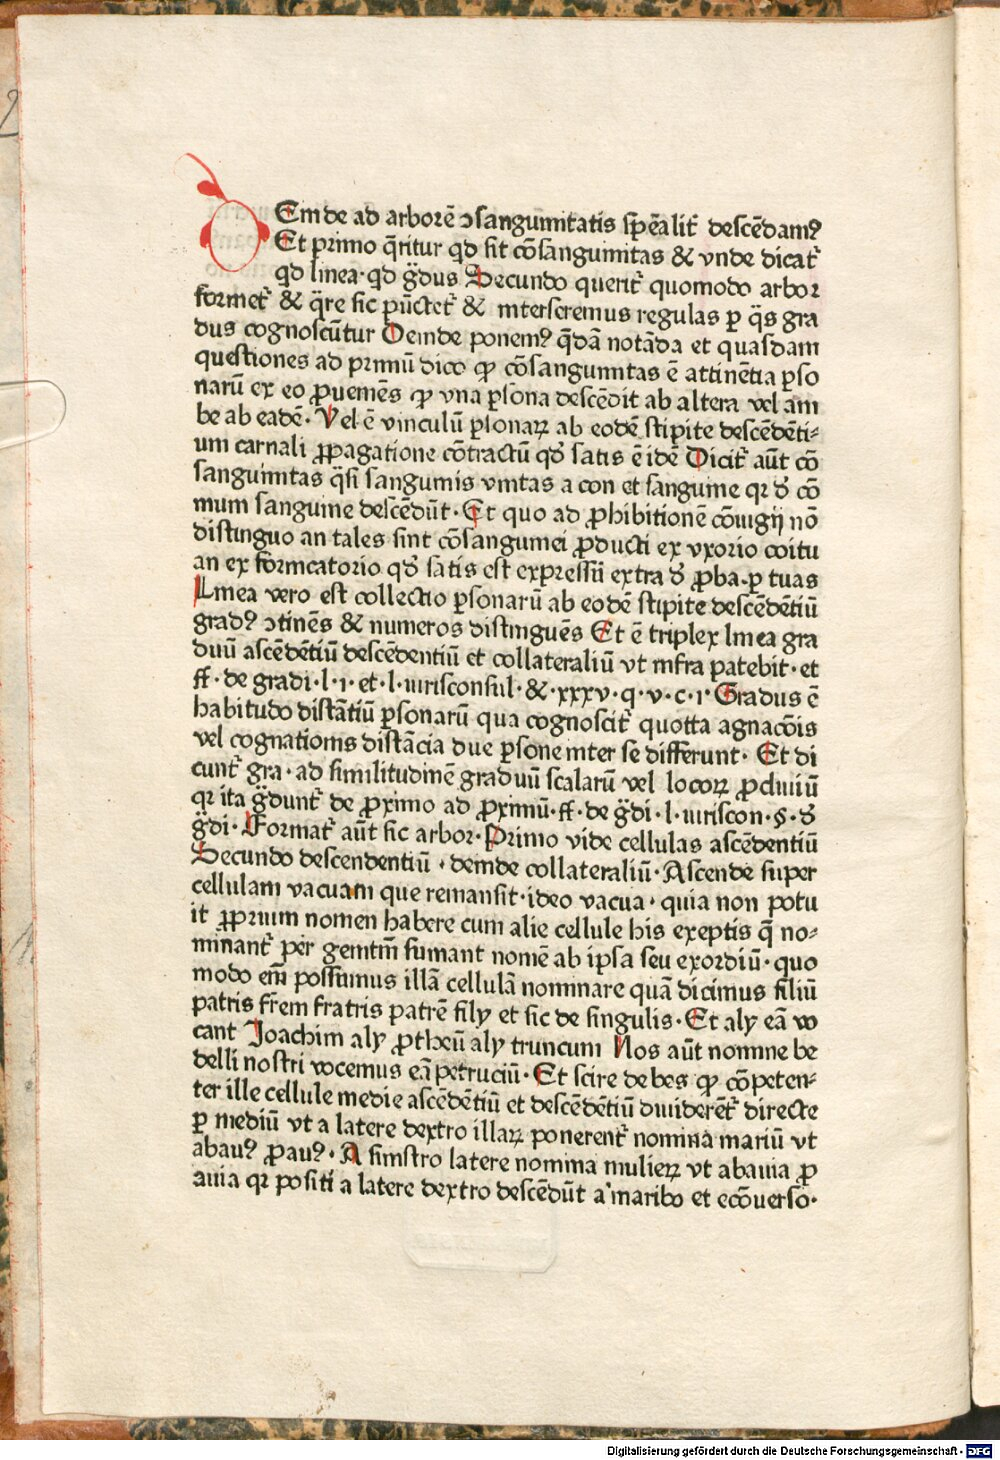 Deinde ad arborē ↄsanguinitatis sp̄ealit᷑ descēdamꝰ
Et primo q̄ritur qd sit cōsanguinitas & vnde dicat᷑
qd linea· qd g̈dus Secundo querit᷑ quomodo arbor
formet᷑ & q̈re sic pūctet᷑ & interseremus regulas ꝑ q̈s gra
dus cognoscūtur Deinde ponemꝰ q̄dā notāda et quasdam
questiones ad primū dico ꝙ cōsanguinitas ē attinētia ꝑso
narū ex eo ꝓueniēs ꝙ vna ꝑsona descēdit ab altera vel am
be ab eadē· Vel ē vinculū ꝑsonaꝝ ab eodē stipite descēdēti-
um carnali ꝓpagatione cōtractū qd̕ satis ē idē Dicit᷑ aūt cō
sanguinitas q̈si sanguinis vnitas a con et sanguine qꝛ d̕ cō
mum sanguine descēdūt· Et quo ad ꝓhibitionē cōiugij nō
distinguo an tales sint cōsanguinei ꝓducti ex vxorio coitu
an ex fornicatorio qd̕ satis est expressū extra d̕ ꝓba·ꝑ tuas
Linea vero est collectio ꝑsonarū ab eodē stipite descēdētiū
gradꝰ ↄtinēs & numeros distinguēs Et ē triplex linea gra
duū ascēdētiū descēdentiū et collateraliū vt infra patebit· et
ff· de gradi·l·1·et·l·iurisconsul·&·xxxv·q·v·c·1· Gradus ē
habitudo distātiū ꝑsonarū qua cognoscit᷑ quotta agnacōis
vel cognationis distācia due ꝑsone inter se differunt· Et di
cunt᷑ gra·ad similitudinē graduū scalarū vel locoꝝ ꝓcliuiū
qꝛ ita g̈dunt᷑ de ꝓximo ad ꝓximū·ff·de g̈di·l·iuriscon·§·d̕
g̈di· Format᷑ aūt sic arbor· Primo vide cellulas ascēdentiū
Secundo descendentiū · deinde collateraliū· Ascende super
cellulam vacuam que remansit·ideo vacua· quia non potu
it ꝓprium nomen habere cum alie cellule his exeptis q̄ no-
minant᷑ per gemtm̄ sumant nomē ab ipsa seu exordiū· quo
modo em̄ possumus illā cellulā nominare quā dicimus filiū
patris fr̄em fratris patrē fily et sic de singulis· Et aly eā vo
cant Joachim aly ꝓtheū aly truncum Nos aūt nomine be
delli nostri vocemus eā petruciū· Et scire debes ꝙ cōpeten-
ter ille cellule medie ascēdētiū et descēdētiū diuiderēt᷑ directe
ꝑ mediū vt a latere dextro illaꝝ ponerent᷑ nomina mariū vt
abauꝰ ꝓauꝰ· A sinistro latere nomina mulieꝝ vt abauia ꝓ
auia qꝛ positi a latere dextro descēdūt a maribo et ecōuerso·
Digitalisierung gefördert durch die Deutsche Forschungsgemeinschaft - DFG